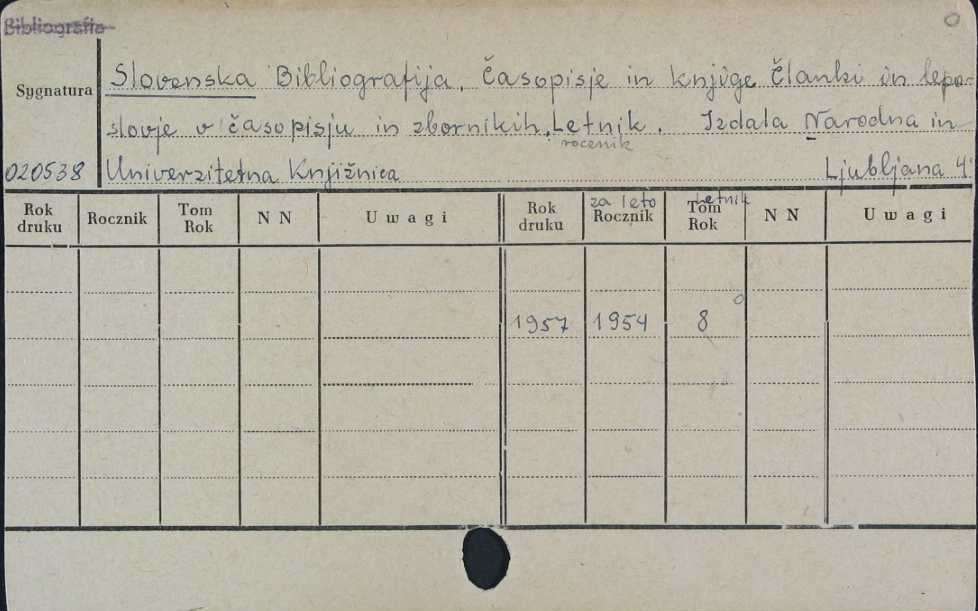 Bibliografia
O
Sygnatura
Slovenska Bibliografija. Časopisje in knjige Članki in lepo-
slovje v časopisju in zbornikih. Letnik. Izdala Narodna in
rocznik
020538 Univerzitetna Knjižnica Ljubljana 4.
za leto Letnik
Rok druku Rocznik Tom Rok N N Uwagi Rok druku Rocznik Tom Rok N N Uwagi
1957 1954 8